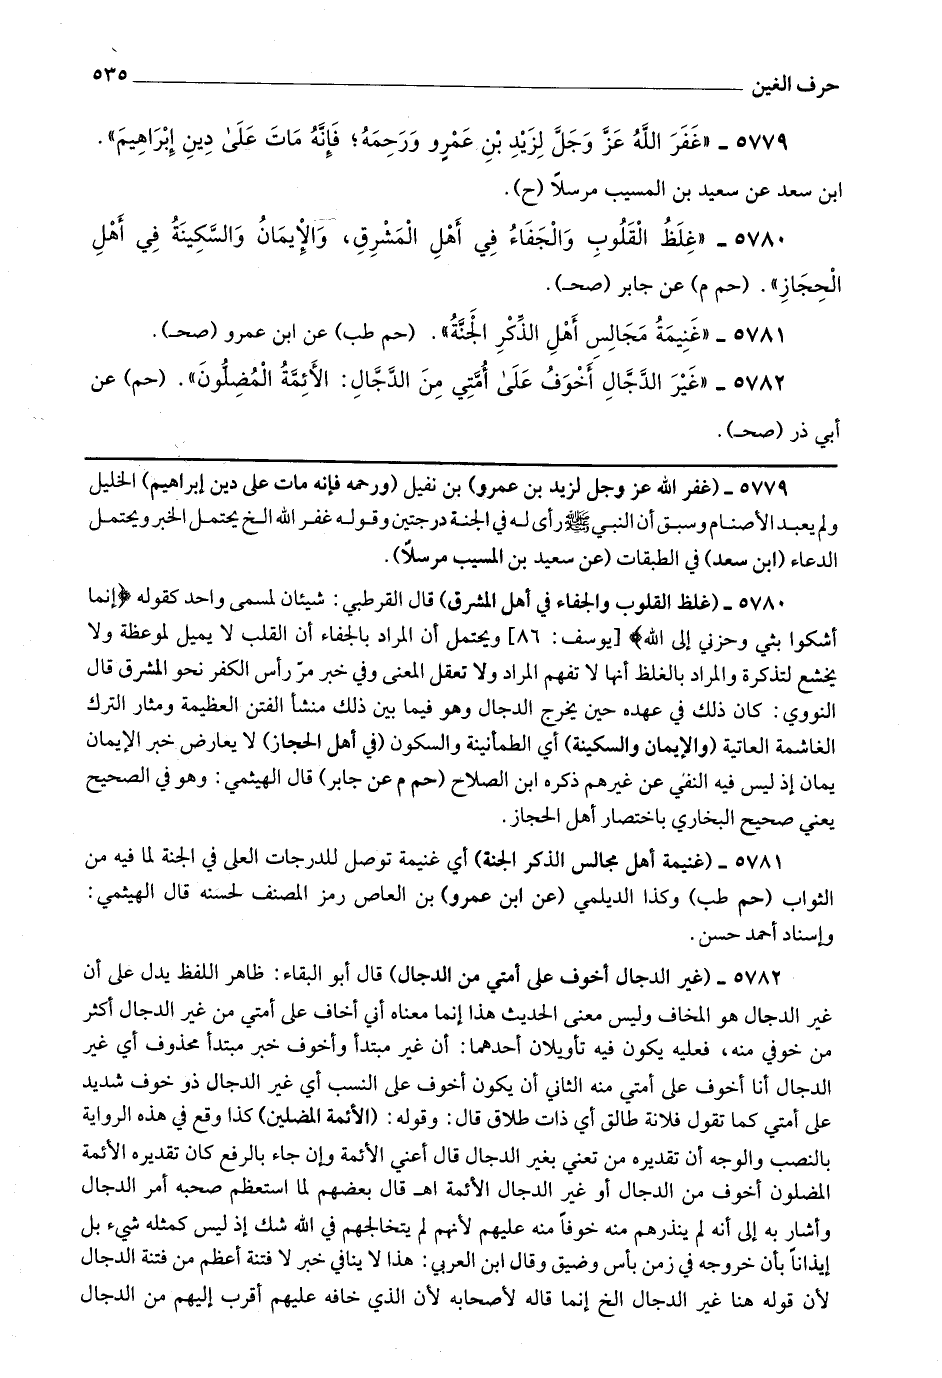 حرف الغين ٥٣٥
٥٧٧٩ ـ «غَفَرَ اللَّهُ عَزَّ وَجَلَّ لِزَيْدِ بْنِ عَمْرٍو وَرَحِمَهُ؛ فَإِنَّهُ مَاتَ عَلَىٰ دِينِ إِبْرَاهِيمَ».
ابن سعد عن سعيد بن المسيب مرسلاً (ح).
٥٧٨٠ ـ «غِلَظُ الْقُلُوبِ وَالْجَفَاءُ فِي أَهْلِ الْمَشْرِقِ، وَالْإِيمَانُ وَالسَّكِينَةُ فِي أَهْلِ
الْحِجَازِ». (حم م) عن جابر (صحـ).
٥٧٨١ ـ «غَنِيمَةُ مَجَالِسِ أَهْلِ الذِّكْرِ الْجَنَّةُ». (حم طب) عن ابن عمرو (صحـ).
٥٧٨٢ ـ «غَيْرَ الدَّجَّالِ أَخْوَفُ عَلَىٰ أُمَّتِي مِنَ الدَّجَّالِ: الأَئِمَّةُ الْمُضِلُّونَ». (حم) عن
أبي ذر (صحـ).
٥٧٧٩ ـ (غفر الله عز وجل لزيد بن عمرو) بن نفيل (ورحمه فإنه مات على دين إبراهيم) الخليل
ولم يعبد الأصنام وسبق أن النبي ﷺ رأى له في الجنة درجتين وقوله غفر الله الخ يحتمل الخبر ويحتمل
الدعاء (ابن سعد) في الطبقات (عن سعيد بن المسيب مرسلاً).
٥٧٨٠ ـ (غلظ القلوب والجفاء في أهل المشرق) قال القرطبي: شيئان لمسمى واحد كقوله ﴿إنما
أشكوا بثي وحزني إلى الله﴾ [يوسف: ٨٦] ويحتمل أن المراد بالجفاء أن القلب لا يميل لموعظة ولا
يخشع لتذكرة والمراد بالغلظ أنها لا تفهم المراد ولا تعقل المعنى وفي خبر مرّ رأس الكفر نحو المشرق قال
النووي: كان ذلك في عهده حين يخرج الدجال وهو فيما بين ذلك منشأ الفتن العظيمة ومثار الترك
الغاشمة العاتية (والإيمان والسكينة) أي الطمأنينة والسكون (في أهل الحجاز) لا يعارض خبر الإيمان
يمان إذ ليس فيه النفي عن غيرهم ذكره ابن الصلاح (حم م عن جابر) قال الهيثمي: وهو في الصحيح
يعني صحيح البخاري باختصار أهل الحجاز.
٥٧٨١ ـ (غنيمة أهل مجالس الذكر الجنة) أي غنيمة توصل للدرجات العلى في الجنة لما فيه من
الثواب (حم طب) وكذا الديلمي (عن ابن عمرو) بن العاص رمز المصنف لحسنه قال الهيثمي:
وإسناد أحمد حسن.
٥٧٨٢ ـ (غير الدجال أخوف على أمتي من الدجال) قال أبو البقاء: ظاهر اللفظ يدل على أن
غير الدجال هو المخاف وليس معنى الحديث هذا إنما معناه أني أخاف على أمتي من غير الدجال أكثر
من خوفي منه، فعليه يكون فيه تأويلان أحدهما: أن غير مبتدأ وأخوف خبر مبتدأ محذوف أي غير
الدجال أنا أخوف على أمتي منه الثاني أن يكون أخوف على النسب أي غير الدجال ذو خوف شديد
على أمتي كما تقول فلانة طالق أي ذات طلاق قال: وقوله: (الأئمة المضلين) كذا وقع في هذه الرواية
بالنصب والوجه أن تقديره من تعني بغير الدجال قال أعني الأئمة وإن جاء بالرفع كان تقديره الأئمة
المضلون أخوف من الدجال أو غير الدجال الأئمة اهـ قال بعضهم لما استعظم صحبه أمر الدجال
وأشار به إلى أنه لم ينذرهم منه خوفاً منه عليهم لأنهم لم يتخالجهم في الله شك إذ ليس كمثله شيء بل
إيذاناً بأن خروجه في زمن بأس وضيق وقال ابن العربي: هذا لا ينافي خبر لا فتنة أعظم من فتنة الدجال
لأن قوله هنا غير الدجال الخ إنما قاله لأصحابه لأن الذي خافه عليهم أقرب إليهم من الدجال